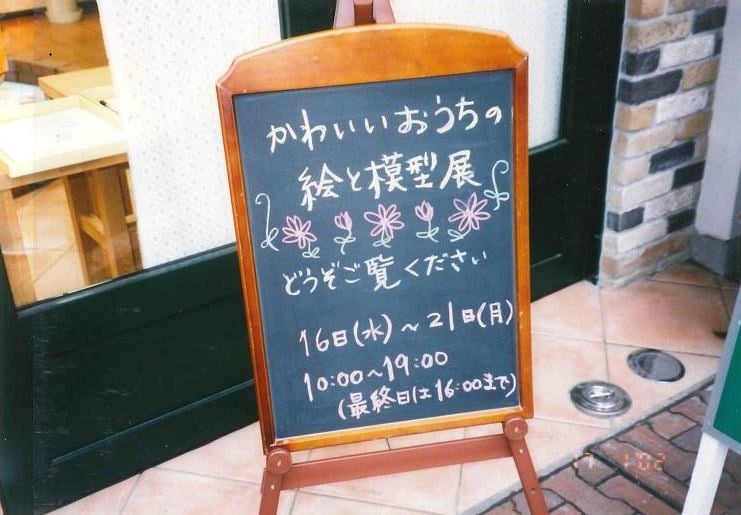 かわいいおうちの
絵と模型展
どうぞご覧ください
16日(水)～21日(月)
10:00～19:00
(最終日は16:00まで)